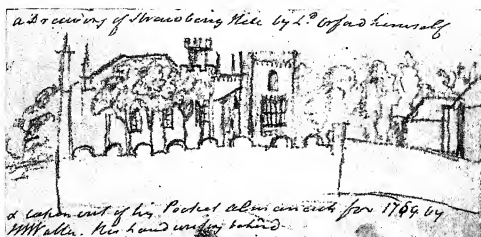 a Drawing of Strawberry Hill by Ld Orford himself
& taken out of his Pocket almanack for 1769 by
his hand writing behind